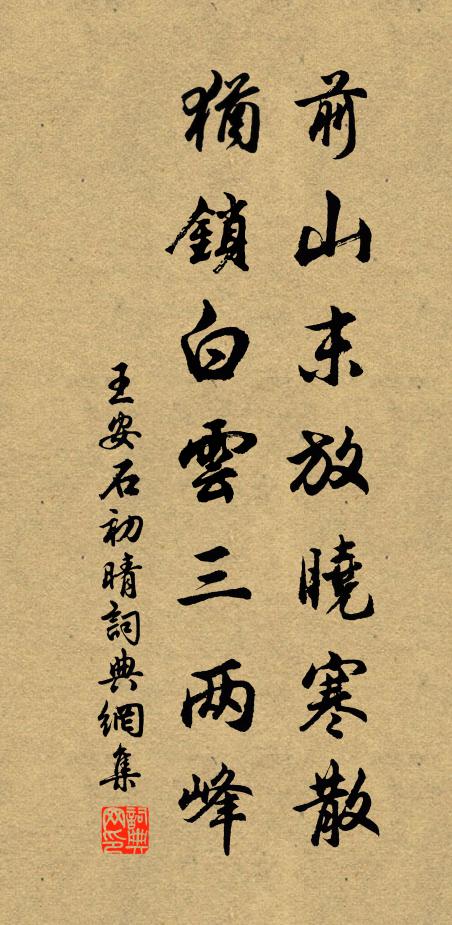 前山未放曉寒散
猶鎖白雲三两峰
王安石初晴詞典網集
詞典網印